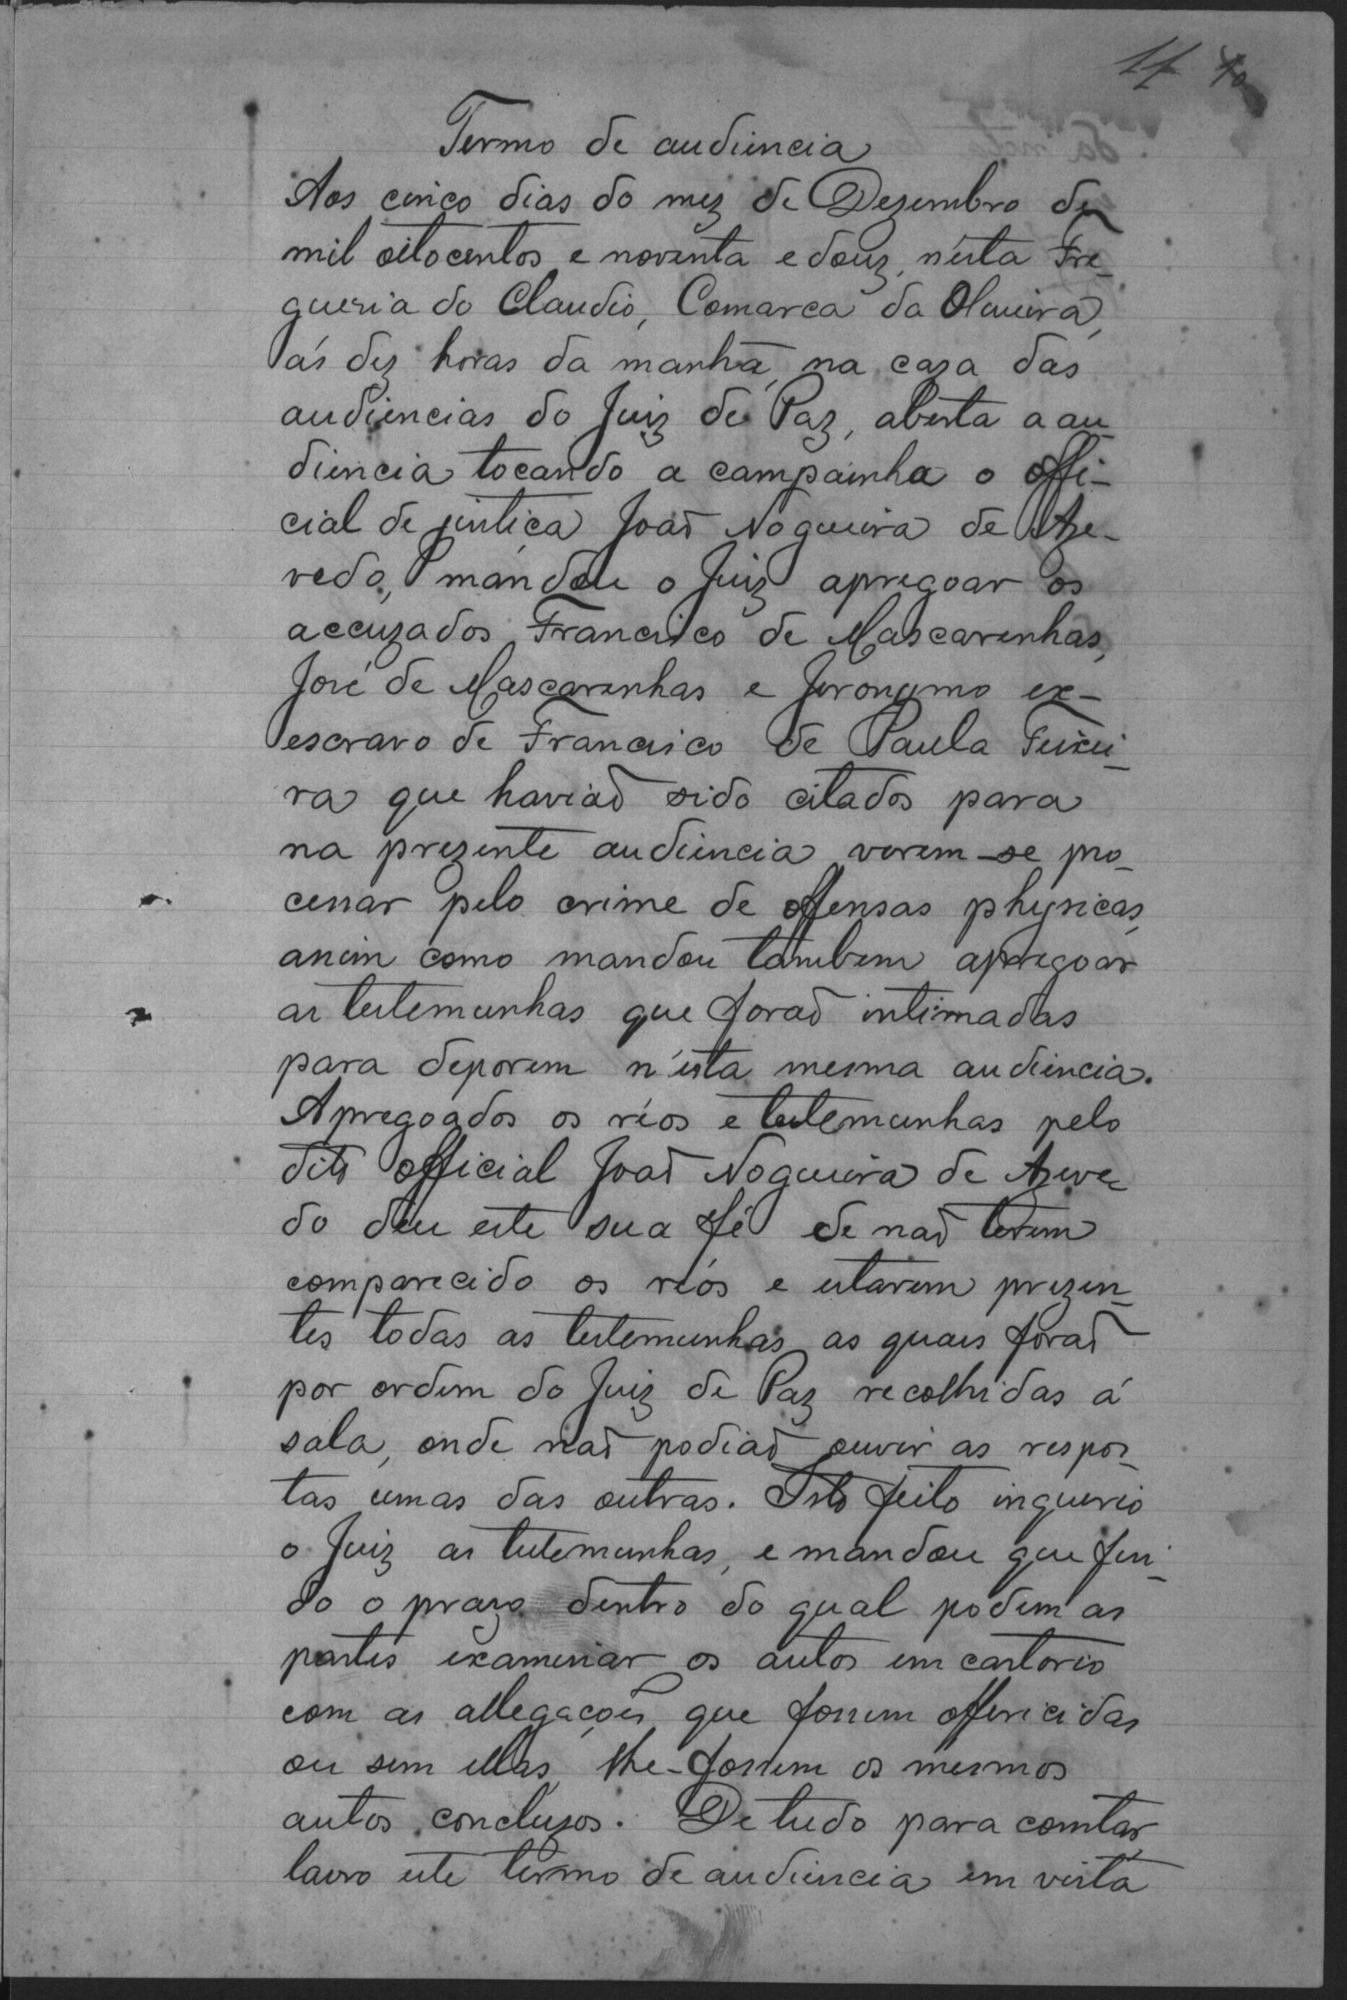 11 10
Termo de audiencia
Aos cinco dias do mez de Dezembro de
mil oitocentos e noventa e douz, n'esta Fre-
guesia do Claudio, Comarca da Oliveira,
ás dez horas da manhã, na caza das
audiencias do Juiz de Paz, aberta a au-
diencia tocando a campainha o offi-
cial de justiça João Nogueira de Aze-
vedo, mandou o Juiz apregoar os
accuzados Francisco de Mascarenhas,
José de Mascarenhas e Jeronymo ex-
escravo de Francisco de Paula Teixei-
ra que havião sido citados para
na prezente audiencia verem-se pro-
cessar pelo crime de offensas physicas,
assim como mandou tambem apregoar
as testemunhas que forão intimadas
para deporem n'esta mesma audiencia.
Apregoados os réos e testemunhas pelo
dito official João Nogueira de Azeve-
do deu este sua fé de não terem
comparecido os réos e estarem prezen-
tes todas as testemunhas as quais forão
por ordem do Juiz de Paz recolhidas á
sala, onde não podião ouvir as respos-
tas umas das outras. Isto feito inquerio
o Juiz as testemunhas, e mandou que fin-
do o prazo dentro do qual podem as
partes examinar os autos em cartorio
com as allegações que forem offericidas
ou sem ellas, lhe-fossem os mesmos
autos concluzos. De tudo para constar,
lavro este termo de audiencia em vista